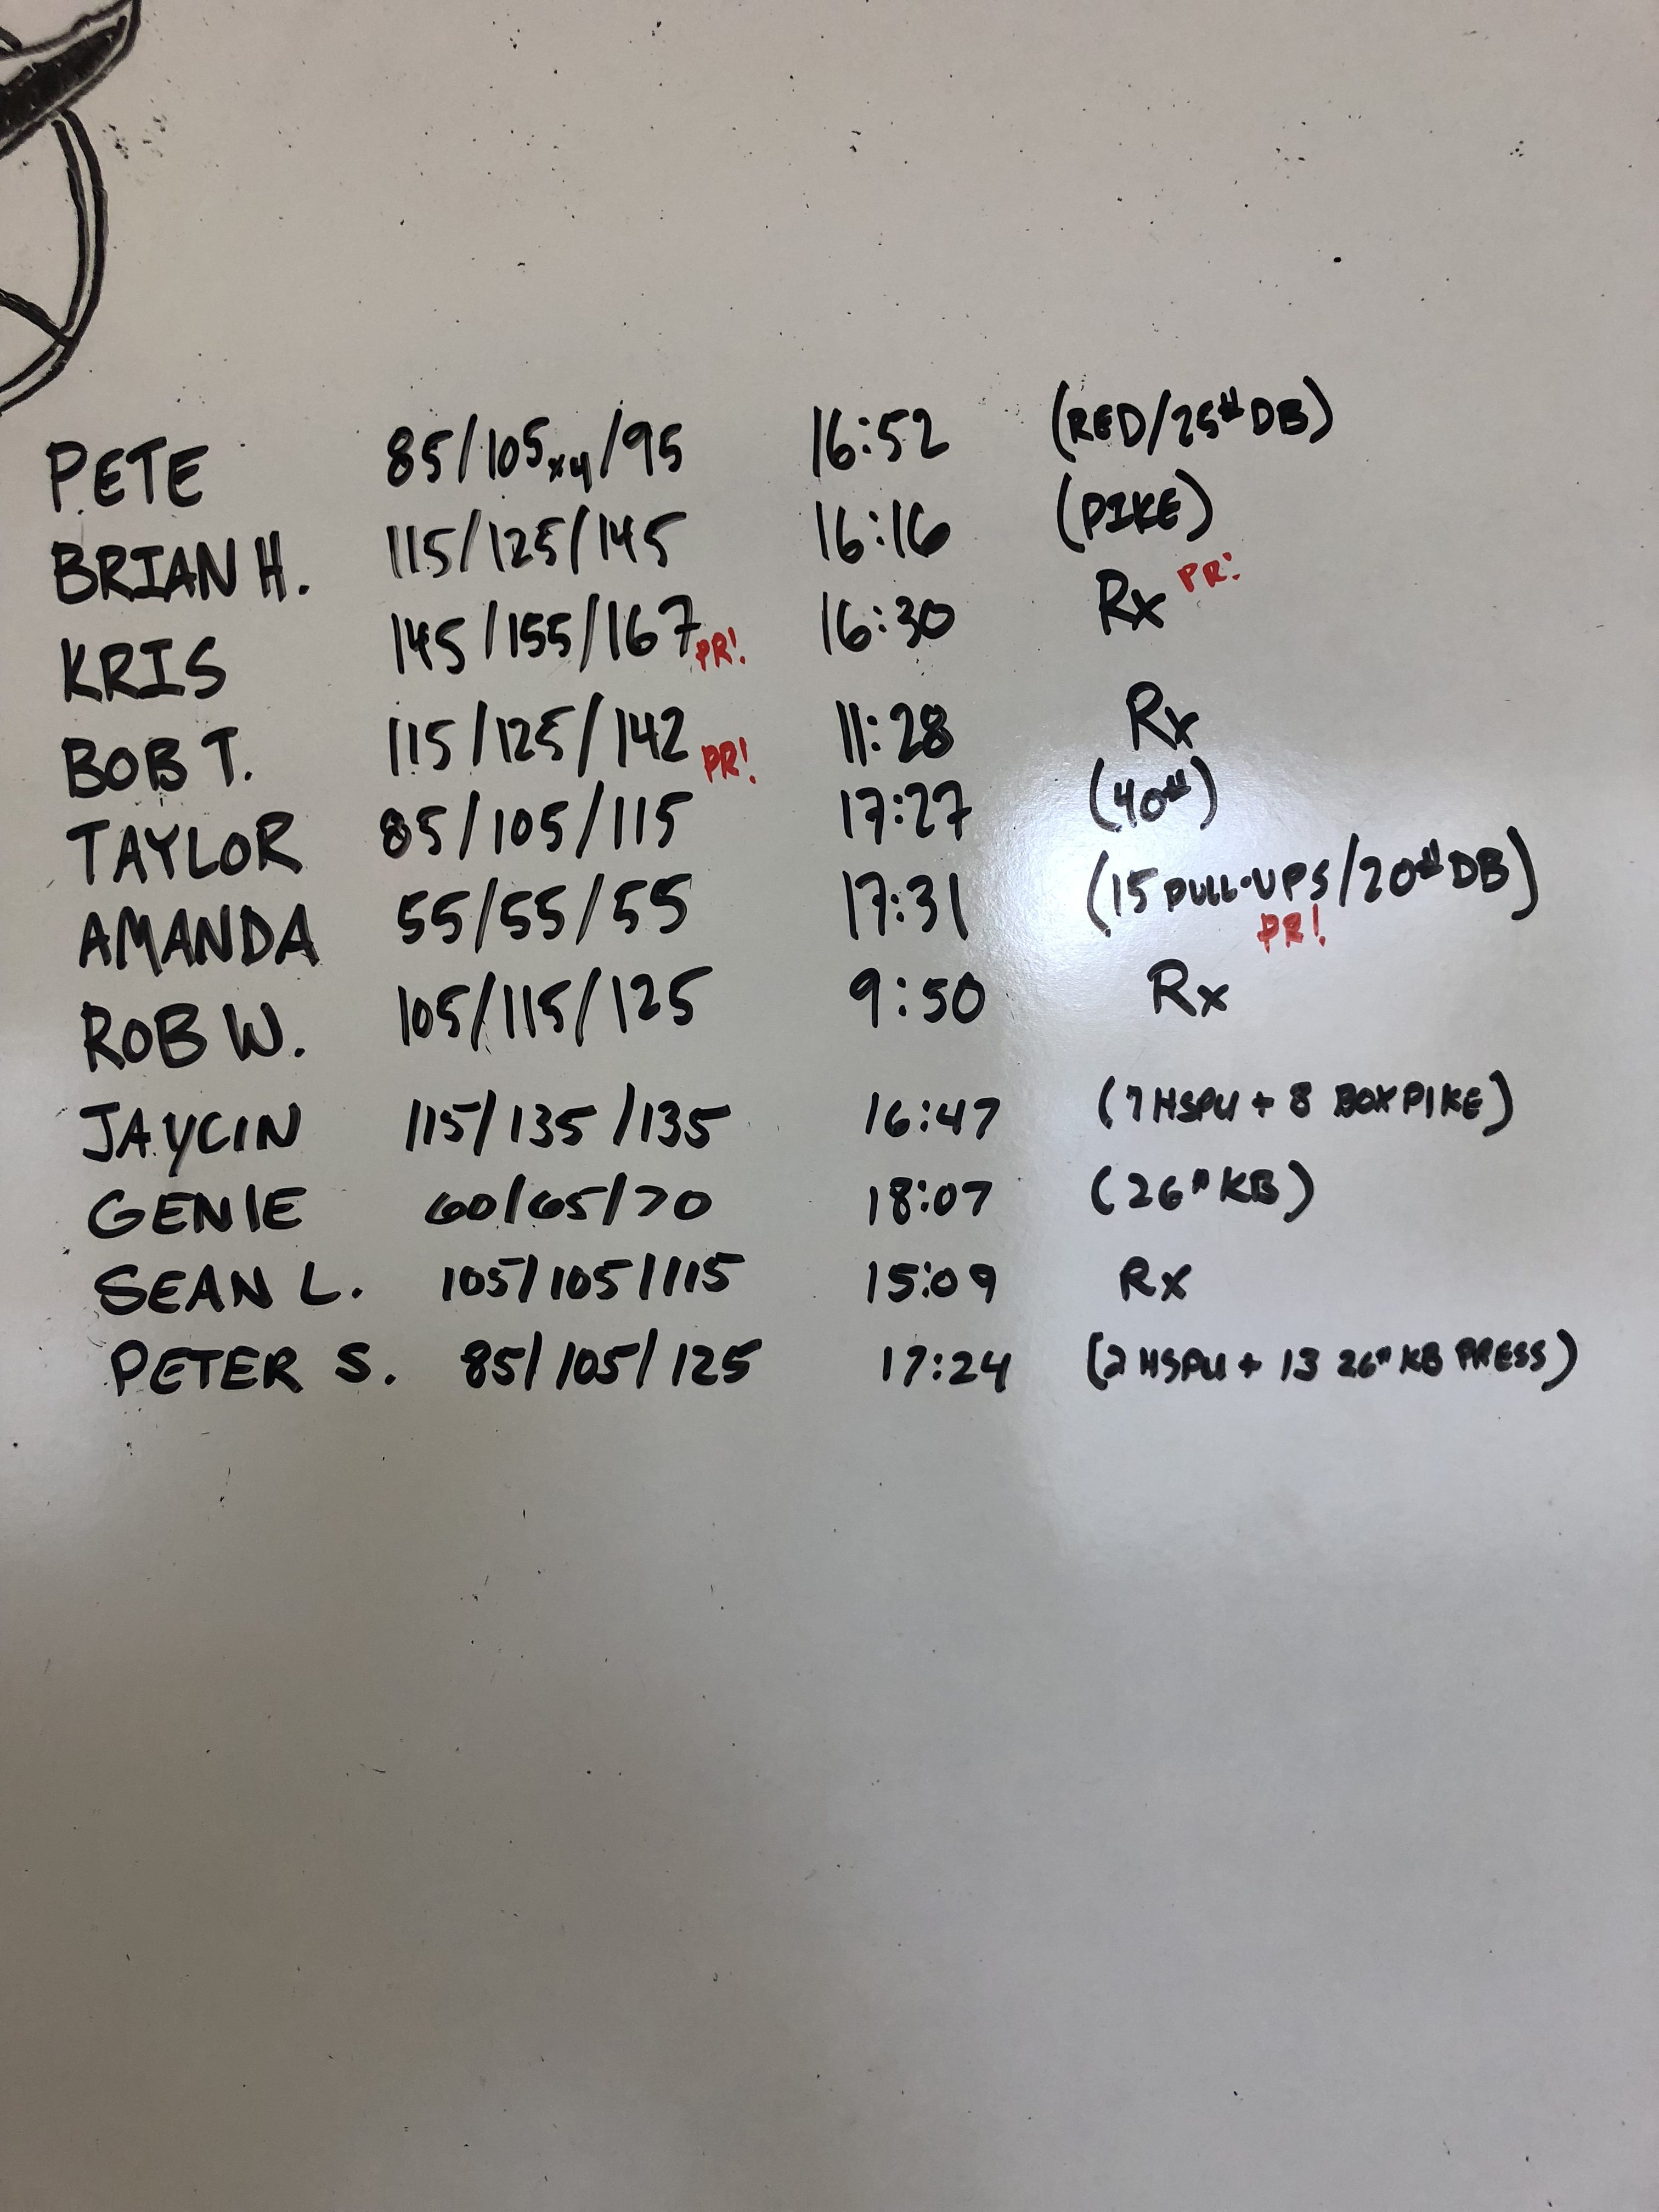 PETE 85/105x4/95 16:52 (RED/25# DB)
BRIAN H. 115/125/145 16:16 (PIKE)
KRIS 145/155/167 PR! 16:30 Rx PR!
BOB T. 115/125/142 PR! 11:28 Rx
TAYLOR 85/105/115 17:27 (40#)
AMANDA 55/55/55 17:31 (15 PULL-UPS/20# DB) PR!
ROB W. 105/115/125 9:50 Rx
JAYCIN 115/135/135 16:47 (7 HSPU + 8 BOX PIKE)
GENIE 60/65/70 18:07 (26# KB)
SEAN L. 105/105/115 15:09 Rx
PETER S. 85/105/125 17:24 (2 HSPU + 13 26# KB PRESS)